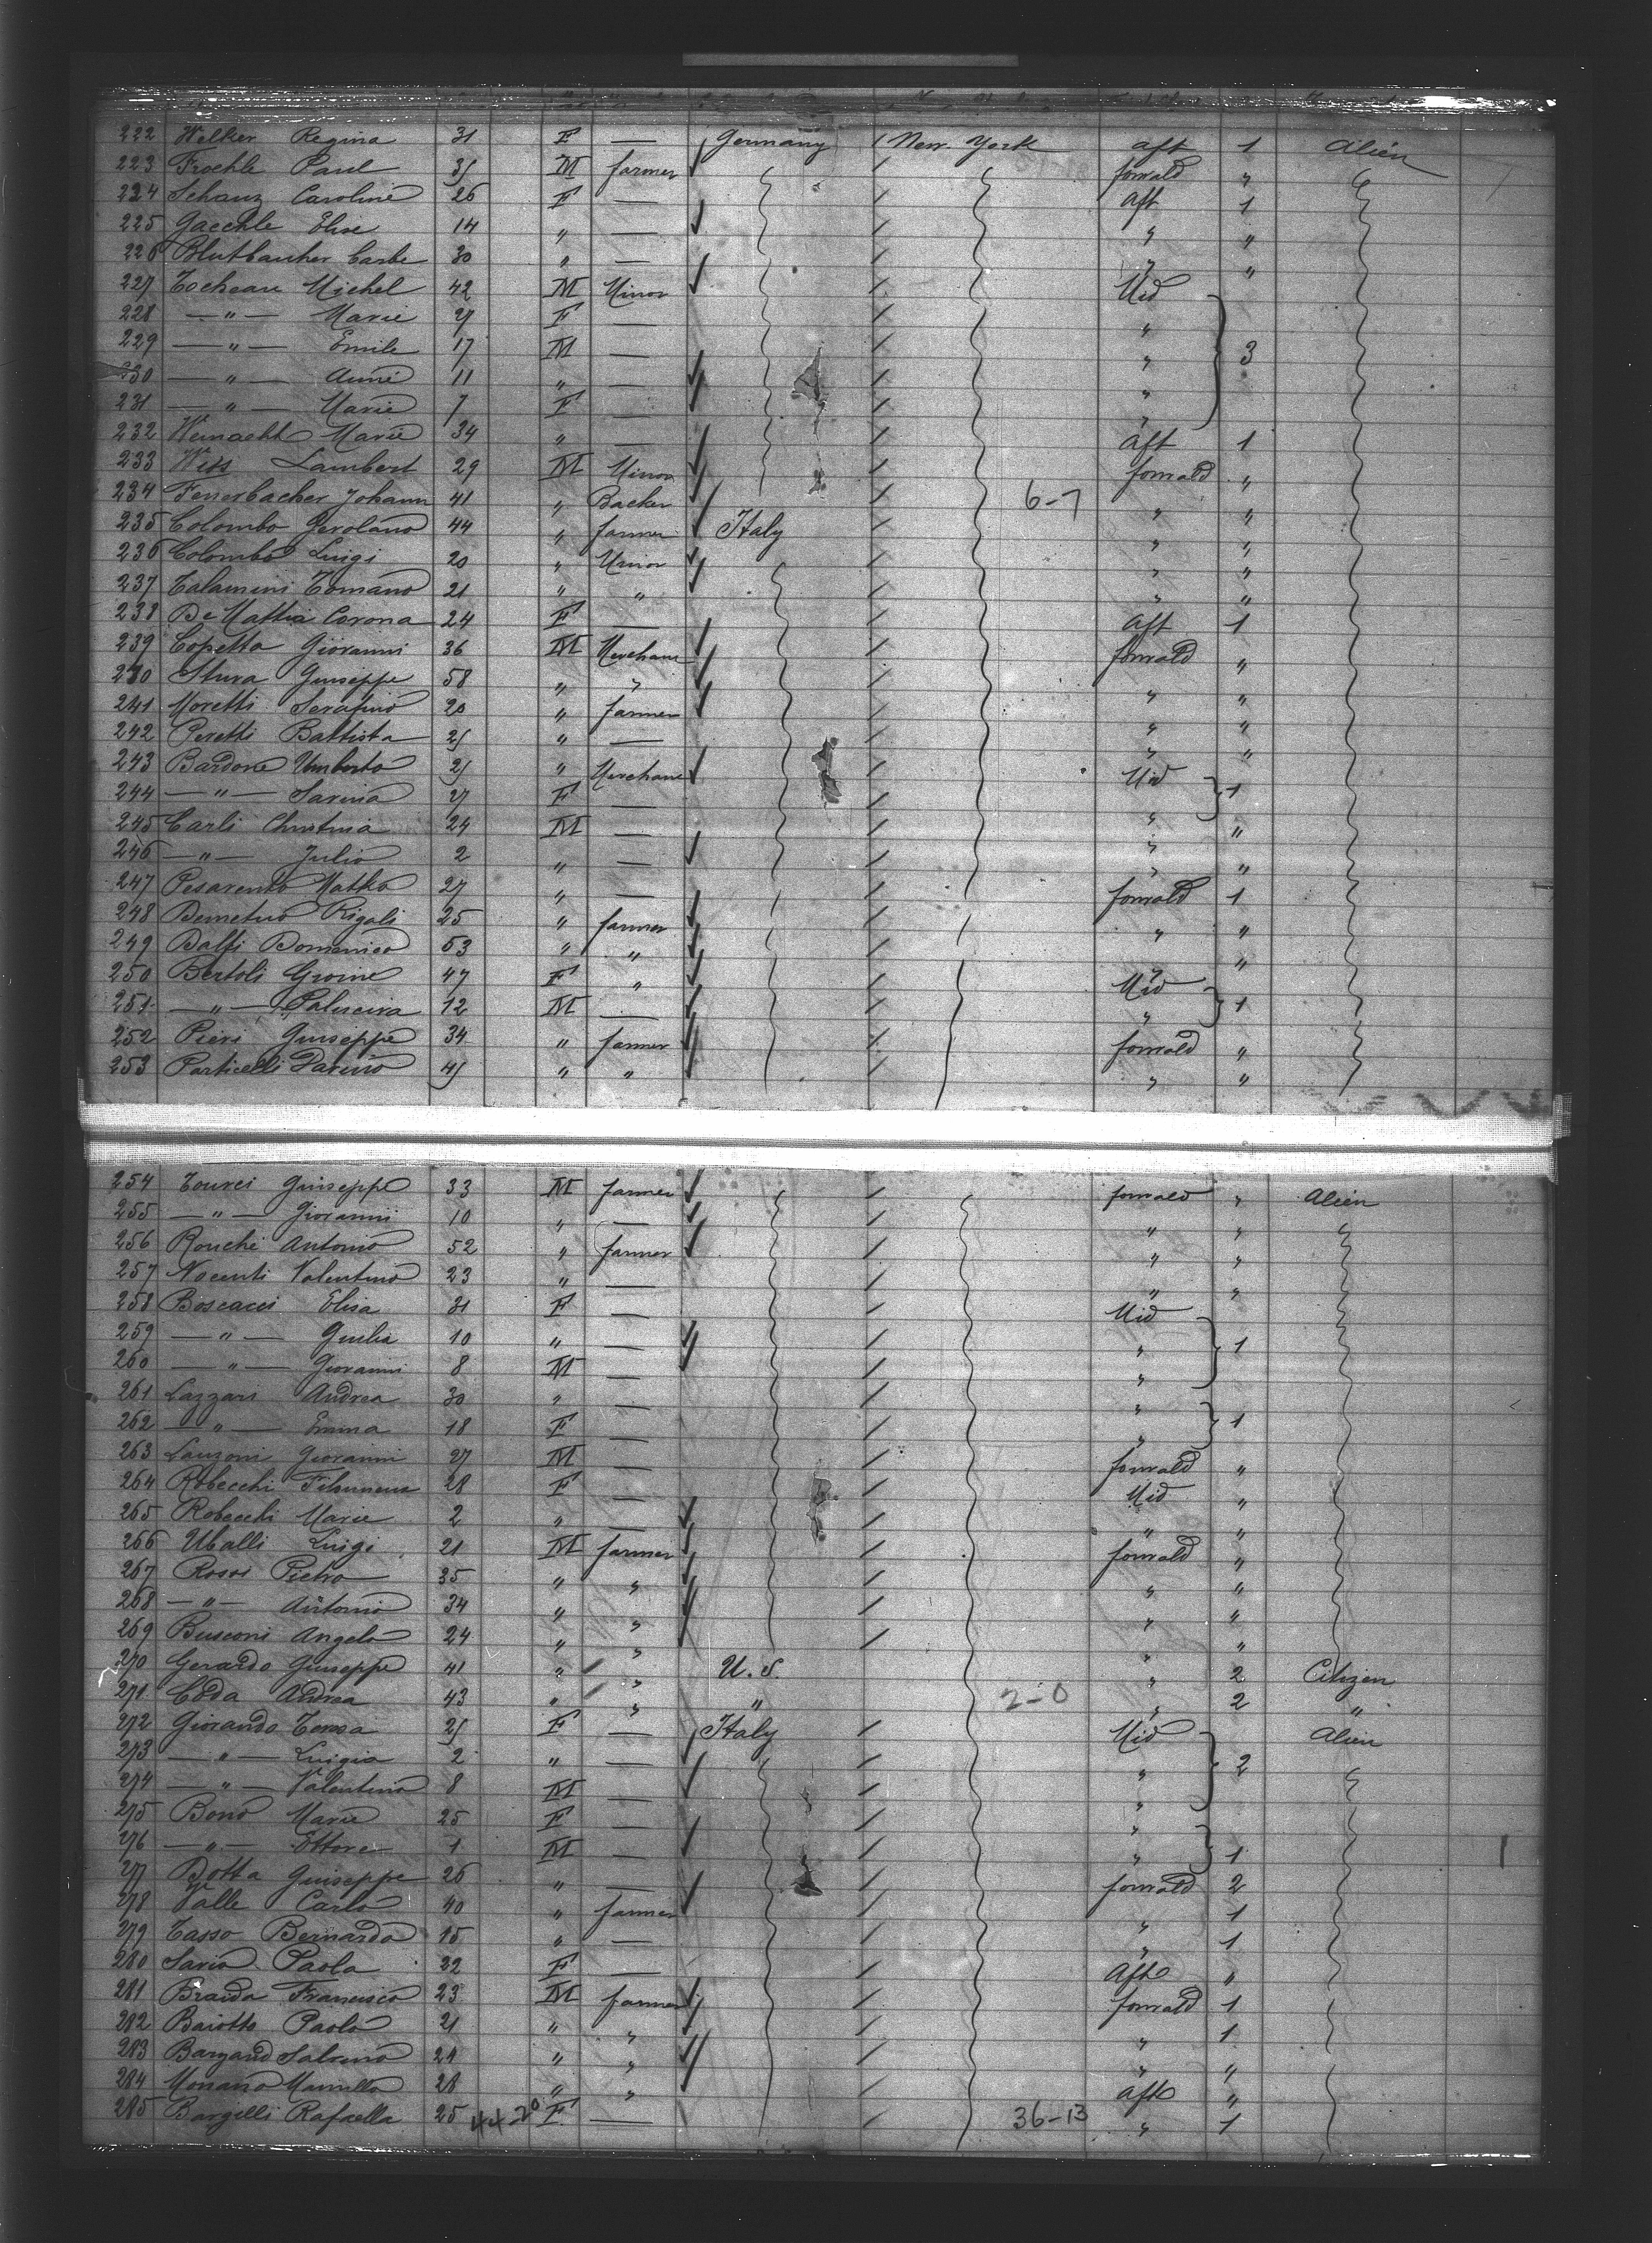 222 Welker Regina 31 F — Germany / New York aft 1 Alien
223 Froehle Paul 35 M farmer / forwald "
224 Schanz Caroline 26 F — / Aft 1
225 Gaechle Elise 14 " — / " "
226 30 " — / " "
227 Michel 42 M Minor / Mid
228 — " — Marie 27 F — / "
229 — " — Emile 17 M — / " 3
230 — " — Aimé 11 " — / "
231 — " — Marie 7 F — / "
232 Marie 34 " — / Aft 1
233 Wiss Lambert 29 M Minor / forwald "
234 Feuerbacher Johann 41 " Backer / 6-7 " "
235 Colombo Gerolano 44 " farmer Italy / " "
236 Colombo Luigi 20 " Minor / " "
237 Talamini Tomano 21 " " / " "
238 De Mattia Corona 24 F — / Aft 1
239 Copetta Giovanni 36 M Merchant / forwald "
240 Stura Guiseppe 58 " " / " "
241 Moretti Serafino 20 " farmer / " "
242 Peretti Battista 25 " — / " "
243 Bardone Umberto 25 " Merchant / Mid
244 — " — Sarina 27 F — / " 1
245 Carli Christina 24 M — / " "
246 — " — Julio 2 " — / " "
247 Pesarento Matteo 27 " — / forwald 1
248 Demetrio Rigali 25 " farmer / " "
249 Balfi Domenico 53 " " / " "
250 Bertoli 47 F " / Mid
251 — " — 12 M — / " 1
252 Pieri Guiseppe 34 " farmer / forwald "
253 Particelli Parino 45 " " / " "
254 Tourci Guiseppe 33 M farmer / forwald " Alien
255 — " — Giovanni 10 " — / " "
256 Ronchi Antonio 52 " farmer / " "
257 Nocenti Valentino 23 " — / " "
258 Boscacci Elisa 31 F — / Mid
259 — " — Guilia 10 " — / " 1
260 — " — Giovanni 8 M — / "
261 Lazzari Andrea 30 " — / "
262 — " — Emma 18 F — / " 1
263 Lanzoni Giovanni 27 M — / forwald "
264 Robecchi Filomena 28 F — / Mid "
265 Robecchi Marie 2 " — / " "
266 Uballi Luigi 21 M farmer / forwald "
267 Rossi Pietro 35 " " / " "
268 — " — Antonio 34 " " / " "
269 Busconi Angelo 24 " " / " "
270 Gerardo Guiseppe 41 " " U.S. " 2 Citizen
271 Coda Andrea 43 " " " 2-0 " 2 "
272 Giorando Teresa 25 F — Italy / Mid Alien
273 — " — Luigia 2 " — / " 2
274 — " — Valentino 8 M — / "
275 Bono Marie 25 F — / "
276 — " — Ettore 1 M — / " 1
277 Botta Guiseppe 26 " — / forwald 2
278 Valle Carlo 40 " farmer / " 1
279 Tasso Bernardo 15 " — / " 1
280 Savio Paola 22 F — / Aft "
281 Braida Francisco 23 M farmer / forwald 1
282 Baiotto Paolo 21 " " / " 1
283 24 " " / " "
284 28 " " / aft "
285 Bargelli Rafaella 25 44-20 F — / 36-13 " 1